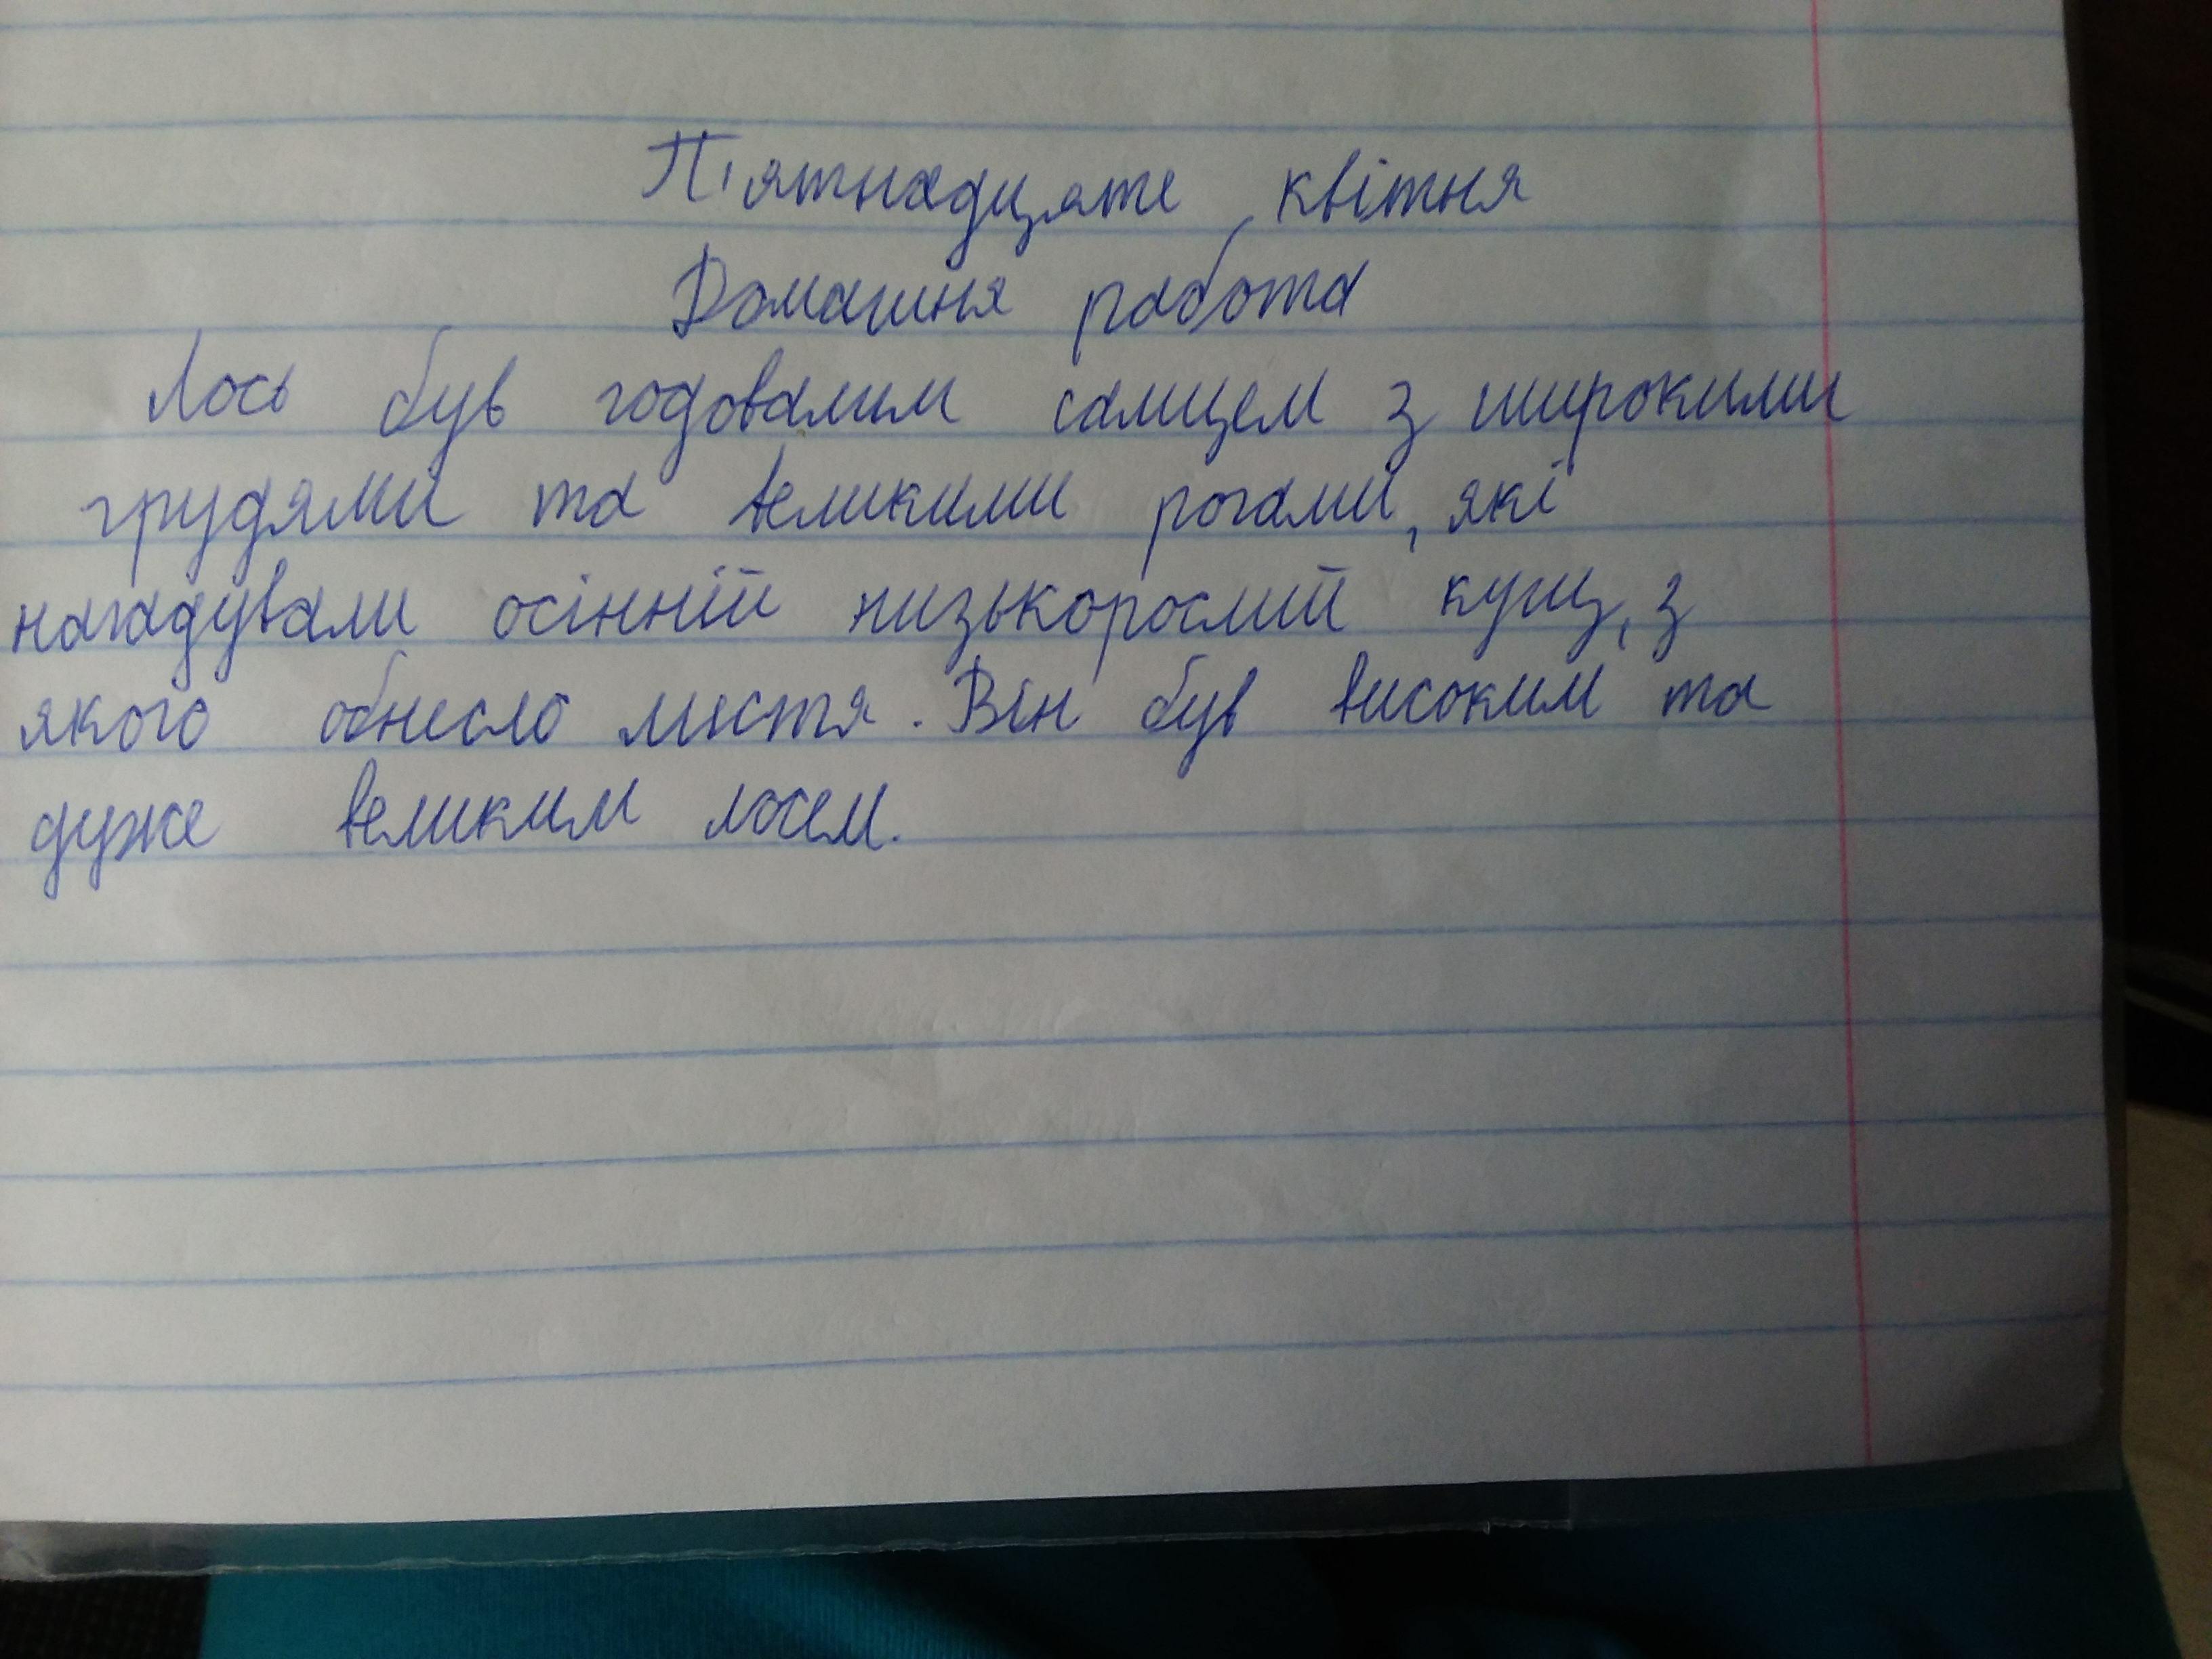 П'ятнадцяте квітня
Домашня работа
Лось був годовалим самцем з широкими
грудями та великими рогами, які
нагадували осінній низькорослий кущ, з
якого обнесло листя. Він був високим та
дуже великим лосем.